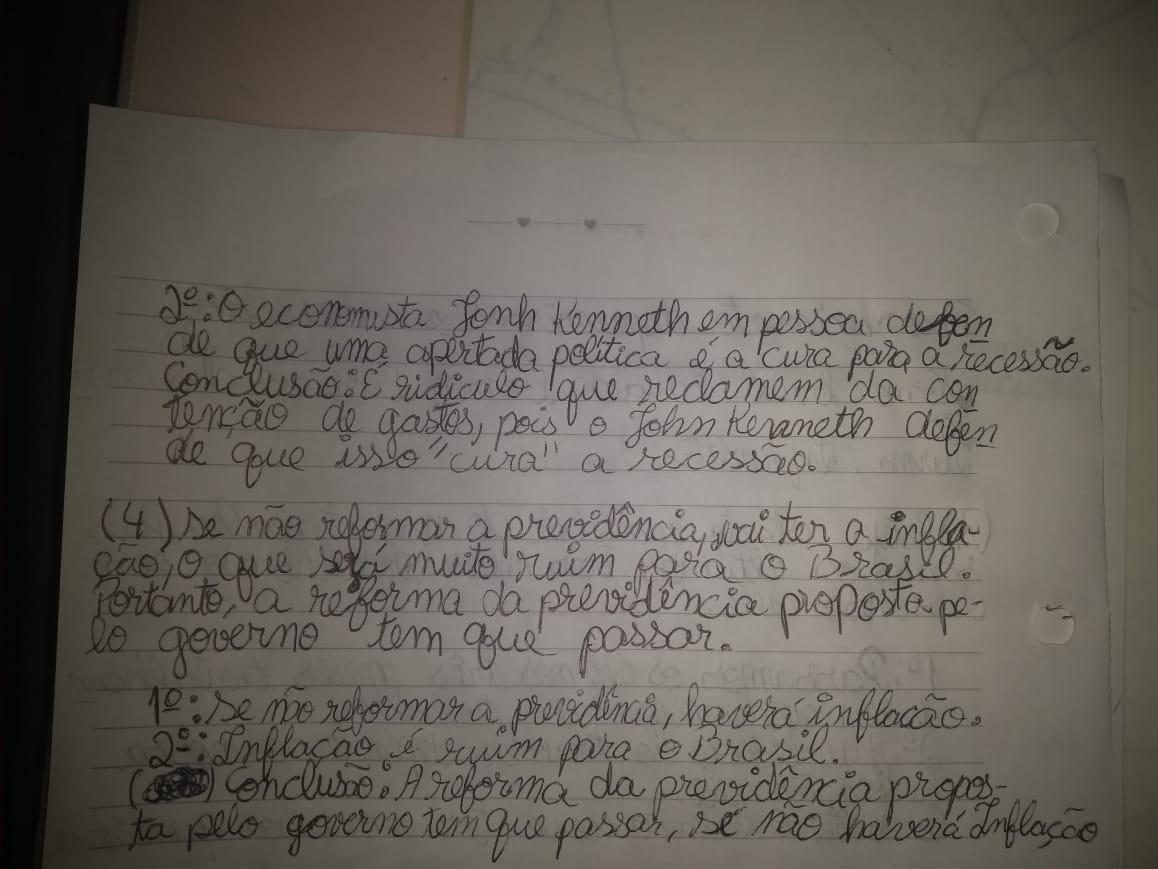 2º: O economista Jonh Kenneth em pessoa defen
de que uma apertada política é a cura para a recessão.
Conclusão: É ridículo que reclamem da con
tenção de gastos, pois o John Kenneth defen
de que isso "cura" a recessão.
(4) Se não reformar a previdência, vai ter a infla-
ção, o que será muito ruim para o Brasil.
Portanto, a reforma da previdência proposta pe-
lo governo tem que passar.
1º: Se não reformar a previdência, haverá inflação.
2º: Inflação é ruim para o Brasil.
Conclusão: A reforma da previdência propos-
ta pelo governo tem que passar, se não haverá Inflação